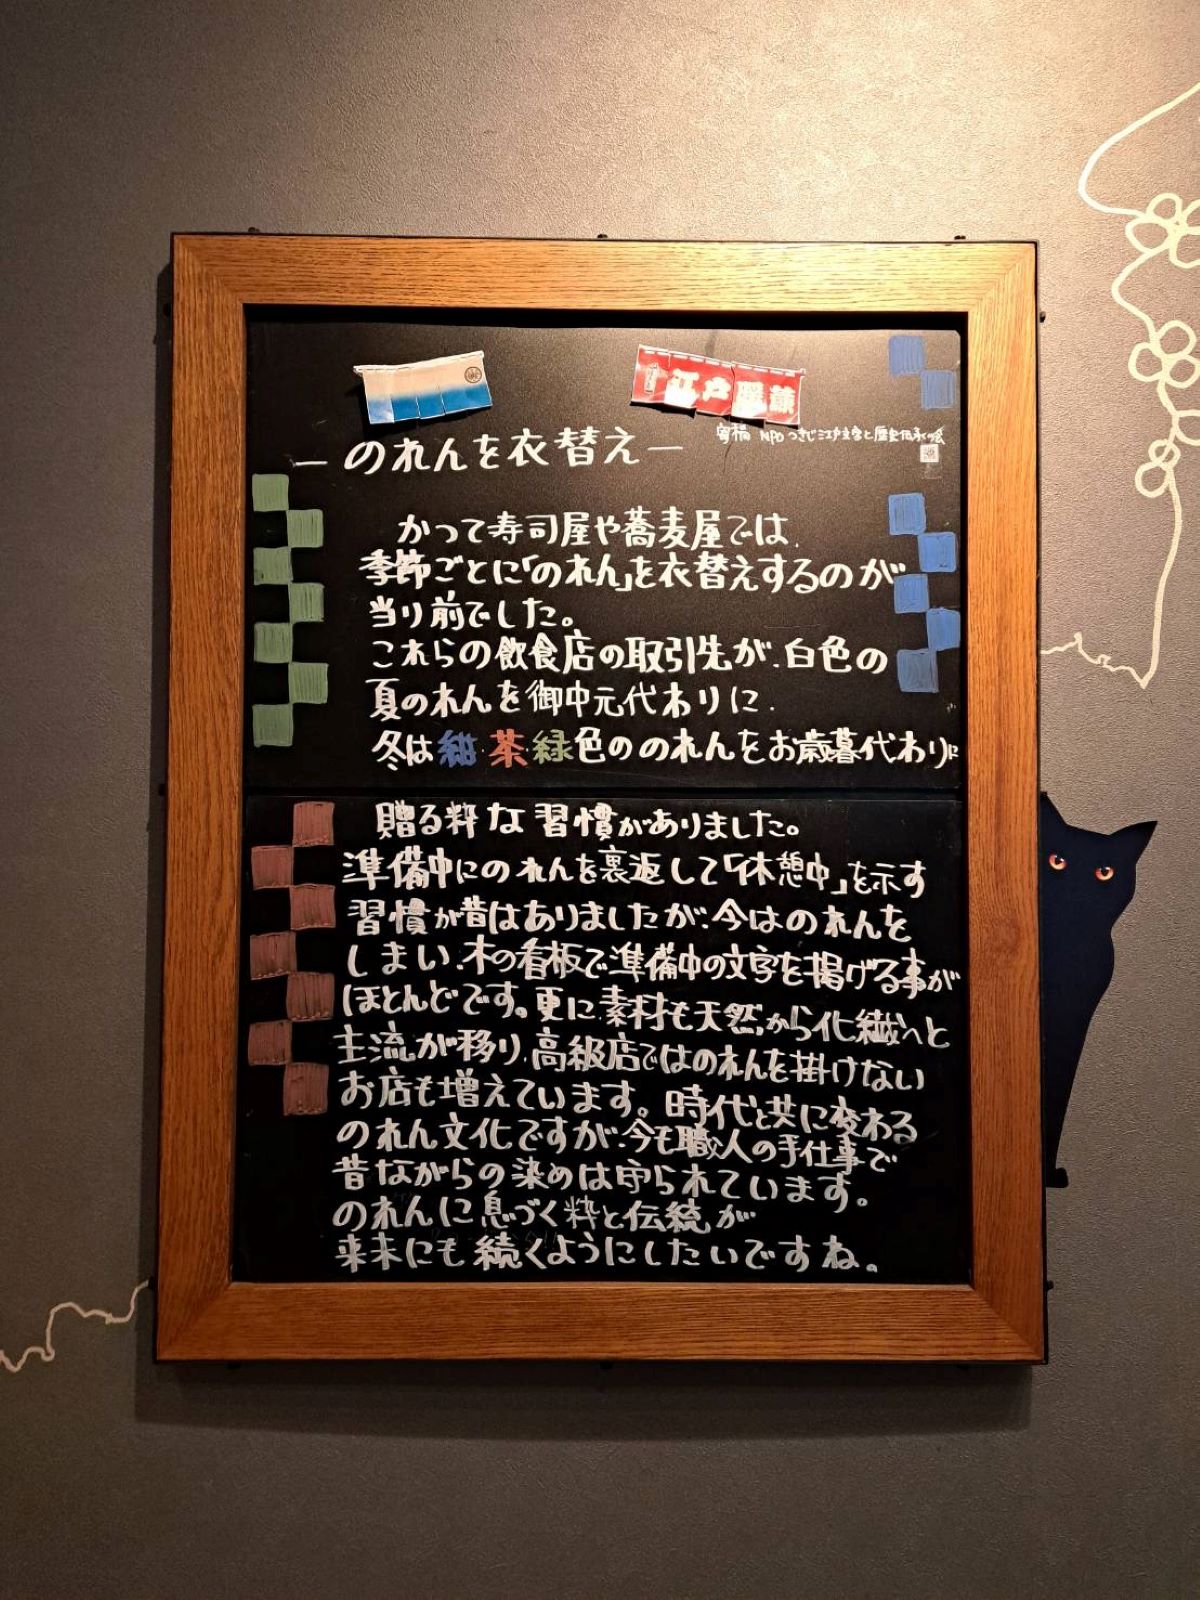 江戸暖簾
寄稿 NPO つきじ江戸文字と歴史伝承の会
－のれんを衣替え－
かつて寿司屋や蕎麦屋では、
季節ごとに「のれん」を衣替えするのが
当り前でした。
これらの飲食店の取引先が、白色の
夏のれんを御中元代わりに、
冬は紺・茶・緑色ののれんをお歳暮代わりに
贈る粋な習慣がありました。
準備中にのれんを裏返して「休憩中」を示す
習慣が昔はありましたが、今はのれんを
しまい、木の看板で準備中の文字を掲げる事が
ほとんどです。更に、素材も天然から化繊へと
主流が移り、高級店ではのれんを掛けない
お店も増えています。時代と共に変わる
のれん文化ですが、今も職人の手仕事で
昔ながらの染めは守られています。
のれんに息づく粋と伝統が
来末にも続くようにしたいですね。